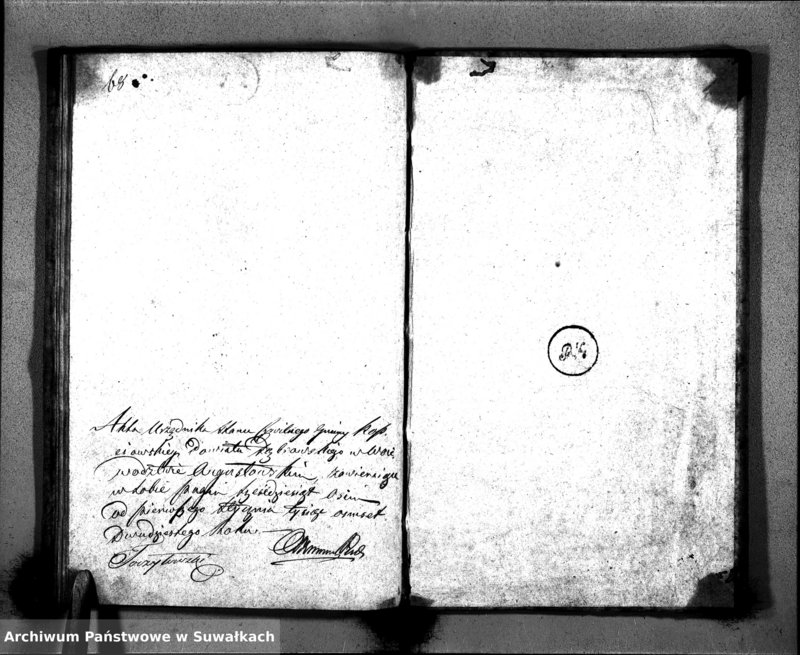 68
Akta Urzędnika Stanu Cywilnego Gminy Kop
ciowskiey Powiatu Seyneńskiego w Woie
wodztwie Augustowskim, zawieraiące
w sobie pagin sześćdziesiąt Osim
od pierwszego stycznia tysiąc osmset
Dwudziestego Roku
Archiwum Państwowe w Suwałkach